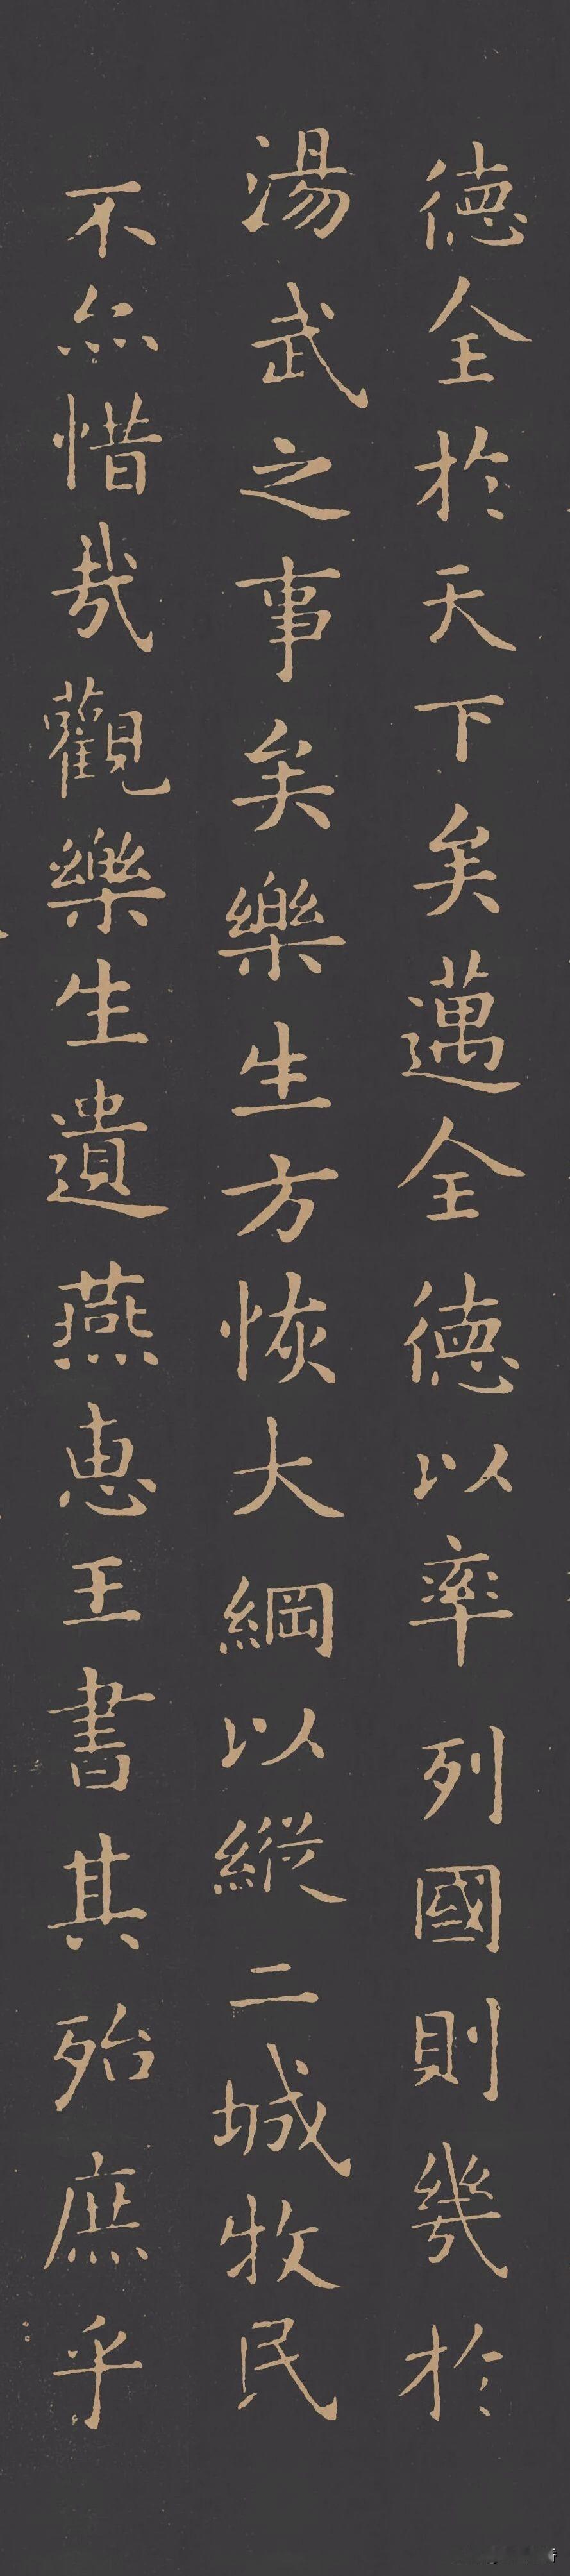 德全於天下矣邁全德以率列國則幾於
湯武之事矣樂生方恢大綱以縱二城牧民
不亦惜哉觀樂生遺燕惠王書其殆庶乎